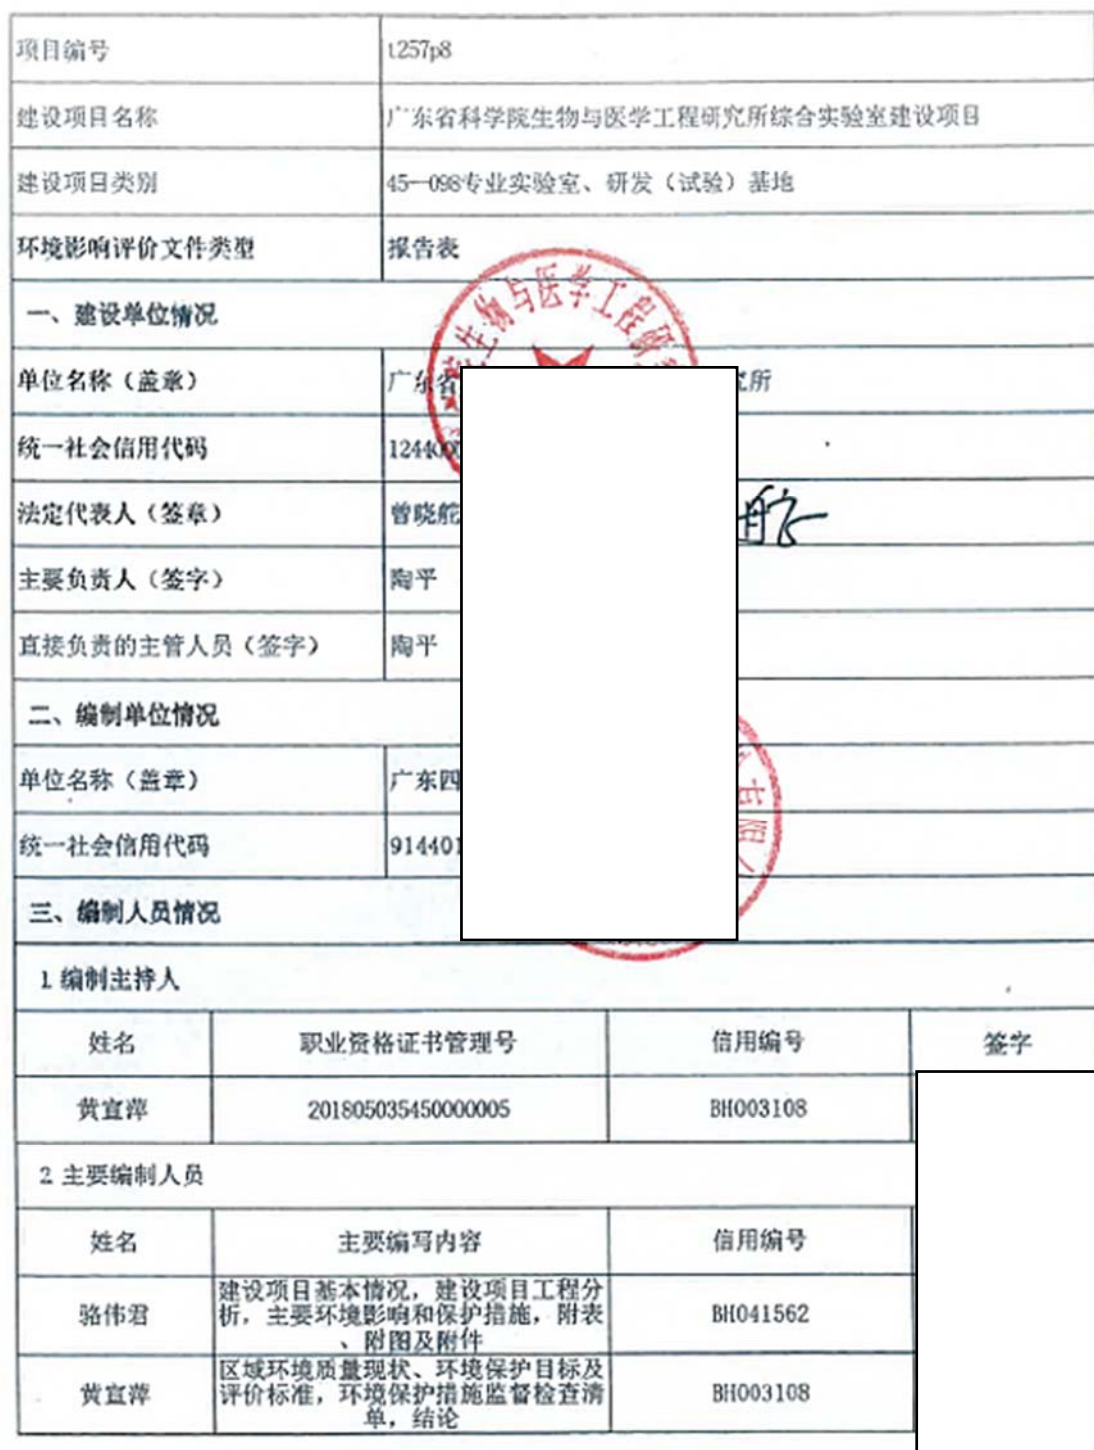 项目编号 t257p8
建设项目名称 广东省科学院生物与医学工程研究所综合实验室建设项目
建设项目类别 45—098专业实验室、研发（试验）基地
环境影响评价文件类型 报告表
一、建设单位情况
单位名称（盖章） 广东省 究所
统一社会信用代码 124400
法定代表人（签章） 曾晓舵
主要负责人（签字） 陶平
直接负责的主管人员（签字） 陶平
二、编制单位情况
单位名称（盖章） 广东四
统一社会信用代码 914401
三、编制人员情况
1 编制主持人
姓名 职业资格证书管理号 信用编号 签字
黄宣萍 201805035450000005 BH003108
2 主要编制人员
姓名 主要编写内容 信用编号
骆伟君 建设项目基本情况，建设项目工程分 BH041562
析，主要环境影响和保护措施，附表
、附图及附件
黄宣萍 区域环境质量现状、环境保护目标及 BH003108
评价标准，环境保护措施监督检查清
单，结论
生物与医学工程研
有限